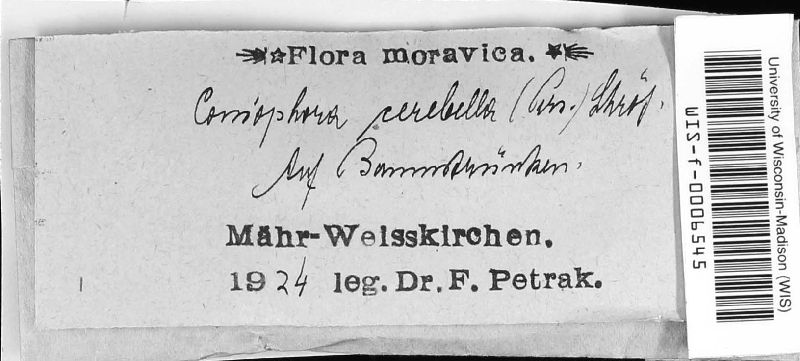 Flora moravica.
Coniophora cerebella (Pers.) Schröt.
Auf Baumstrünken.
Mähr-Weisskirchen.
1924 leg. Dr. F. Petrak.
University of Wisconsin-Madison (WIS)
WIS-f-0006545